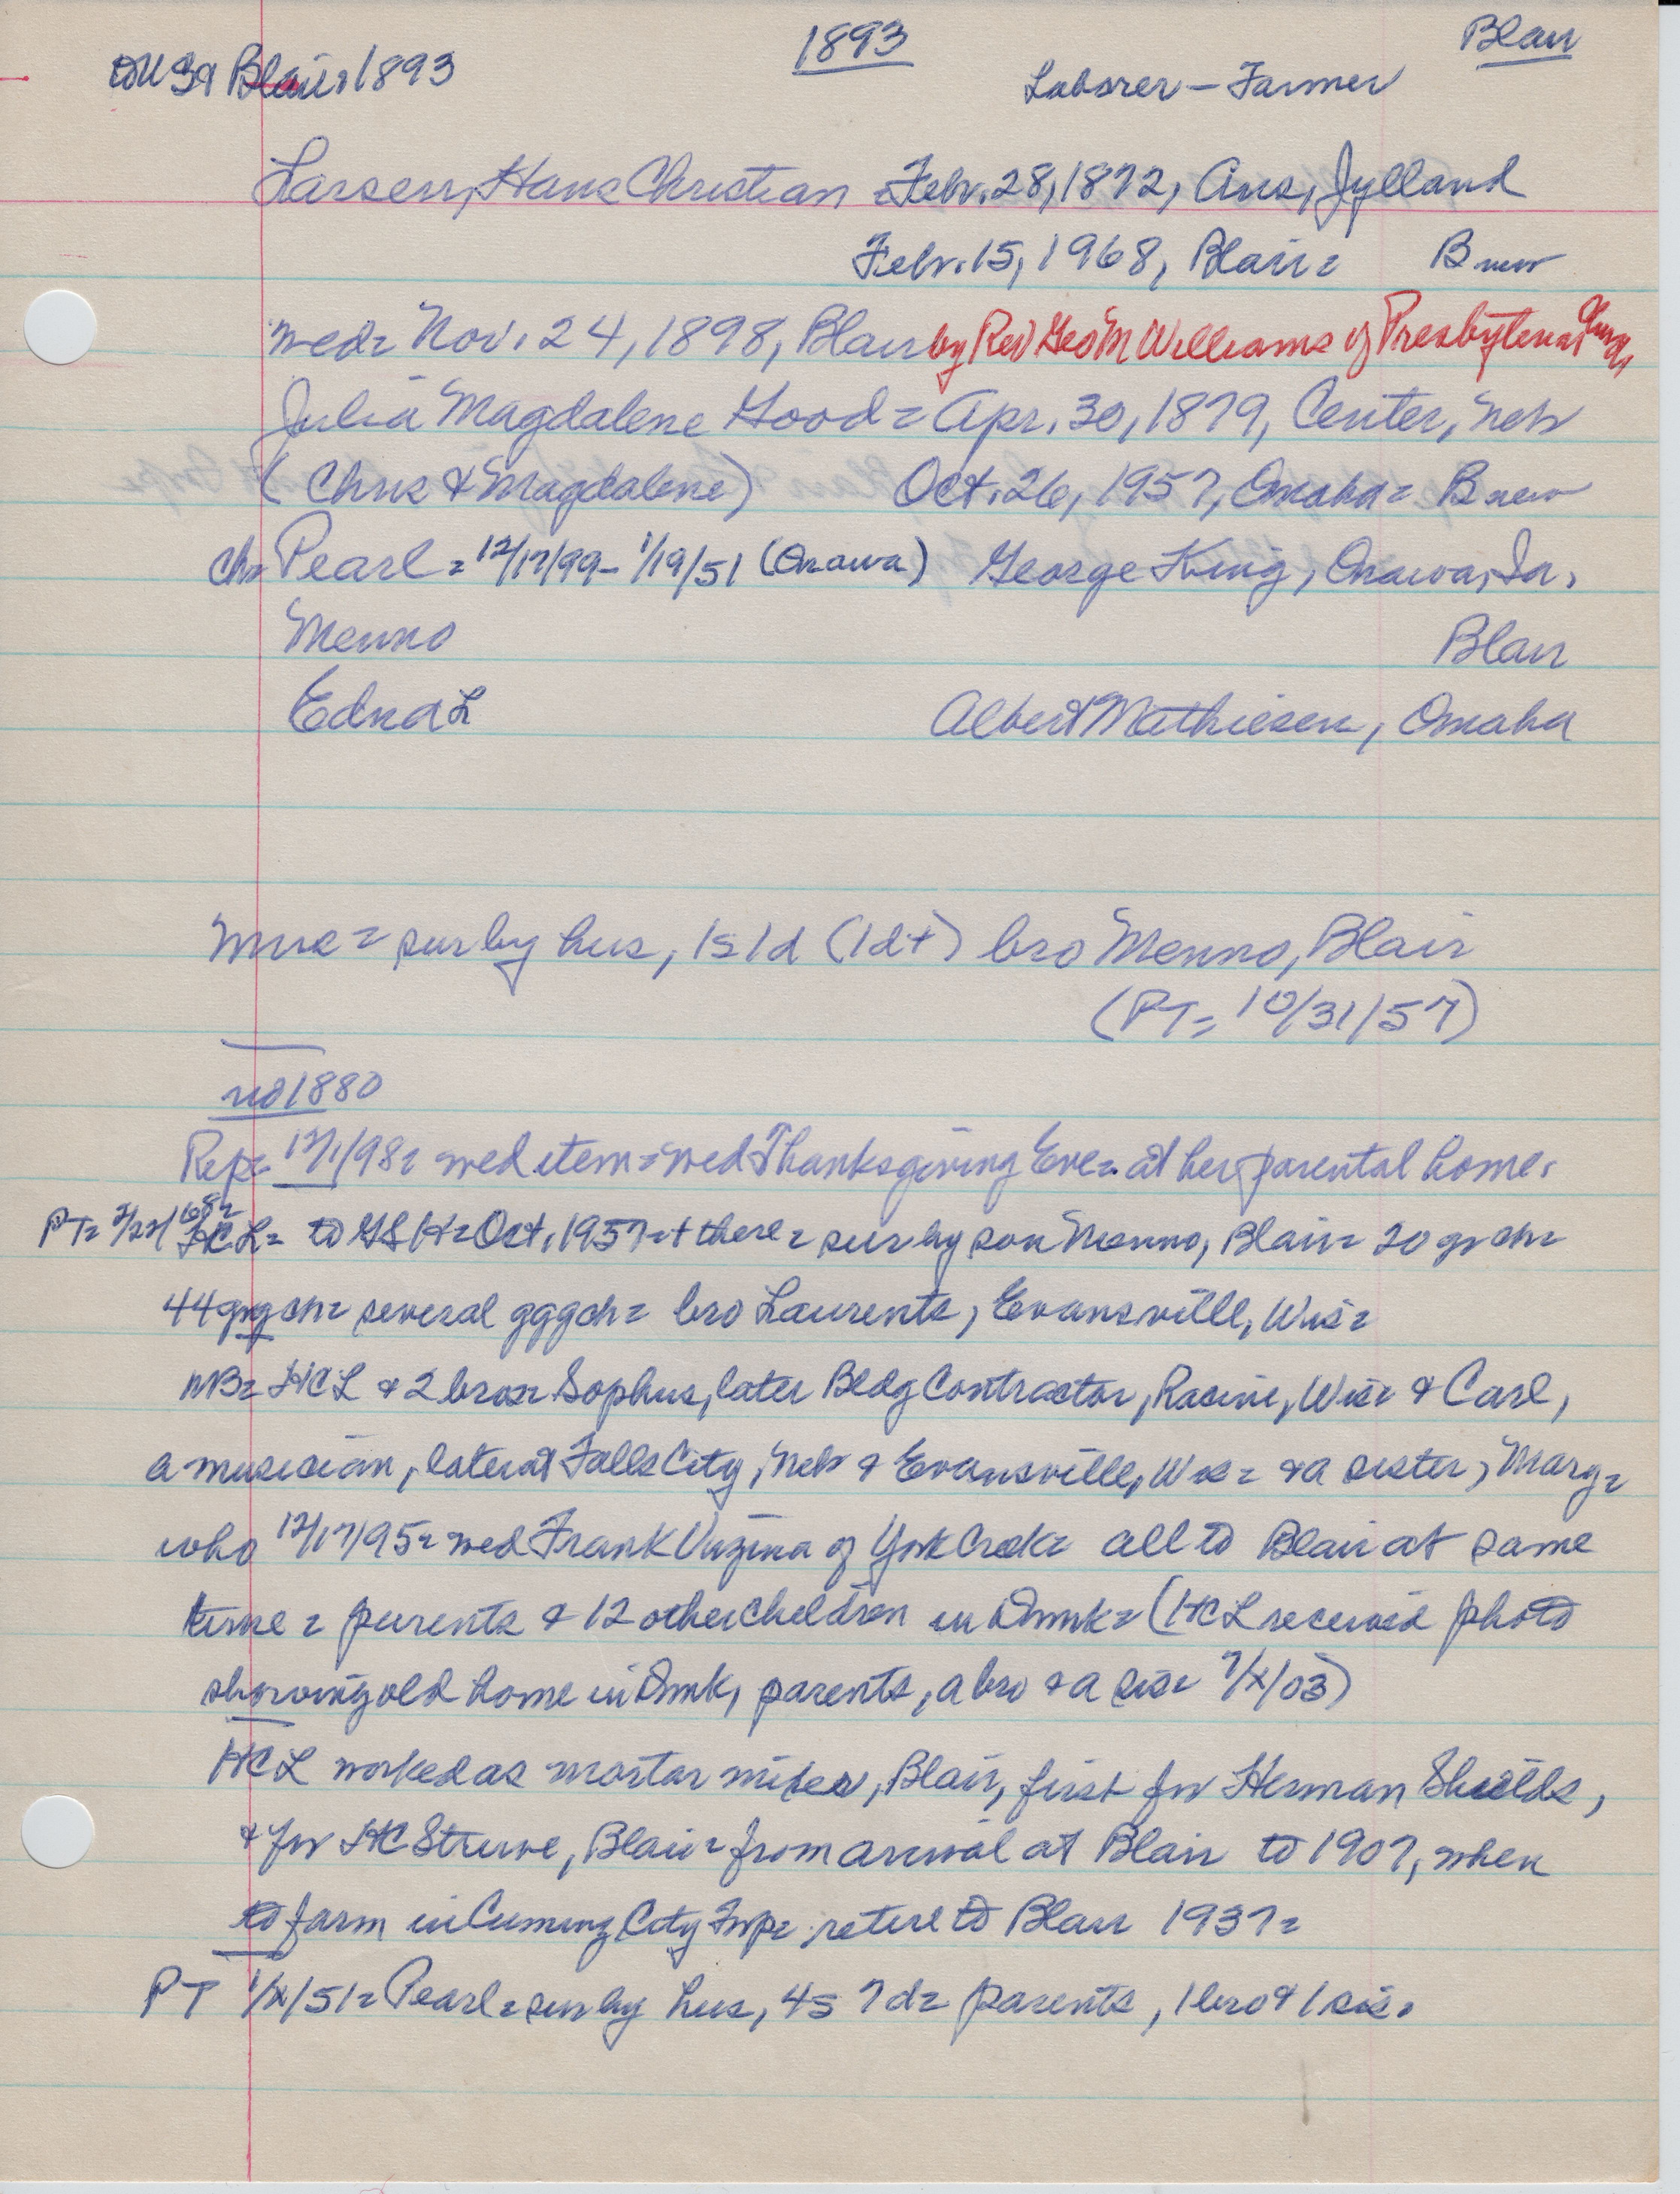 1893 Blair
to US & Blair, 1893 Laborer – Farmer
Larsen, Hans Christian = Febr. 28, 1872, Ans, Jylland
Febr. 15, 1968, Blair = B new
wed = Nov. 24, 1898, Blair by Rev Geo M Williams of Presbyterian Church
Julia Magdalene Hood = Apr. 30, 1879, Center, Neb
(Chris & Magdalene) Oct. 26, 1957, Omaha = B new
ch = Pearl = 12/17/99 – 1/19/51 (Onawa) George King, Onawa, Ia.
Menno Blair
Edna L Albert Mathiesen, Omaha
Mrs = sur by hus, 1s 1d (1d+) bro Menno, Blair
(PT = 10/31/57)
no 1880
Rep = 12/1/98 = wed item = wed Thanksgiving Eve = at her parental home.
PT = 2/22/68 = HCL = to GSH = Oct. 1957 = + there = sur by son Menno, Blair = 20 gr ch =
44 ggch = several gggch = bro Laurents, Evansville, Wis =
NB = HCL & 2 bros = Sophus, later Bldg Contractor, Racine, Wis = & Carl,
a musician, later at Falls City, Neb & Evansville, Wis = & a sister, Mary =
who 12/17/95 = wed Frank of York Creek = all to Blair at same
time = parents & 12 other children in Dnmk = (HCL received photo
showing old home in Dnmk, parents, a bro & a sis = 7/x/03)
HCL worked as mortar mixer, Blair, first for Herman Shields,
& for HC Struve, Blair = from arrival at Blair to 1907, when
to farm in Cuming City Twp = retire to Blair 1937 =
PT 1/x/51 = Pearl = sur by hus, 4s 7d = parents, 1 bro & 1 sis.